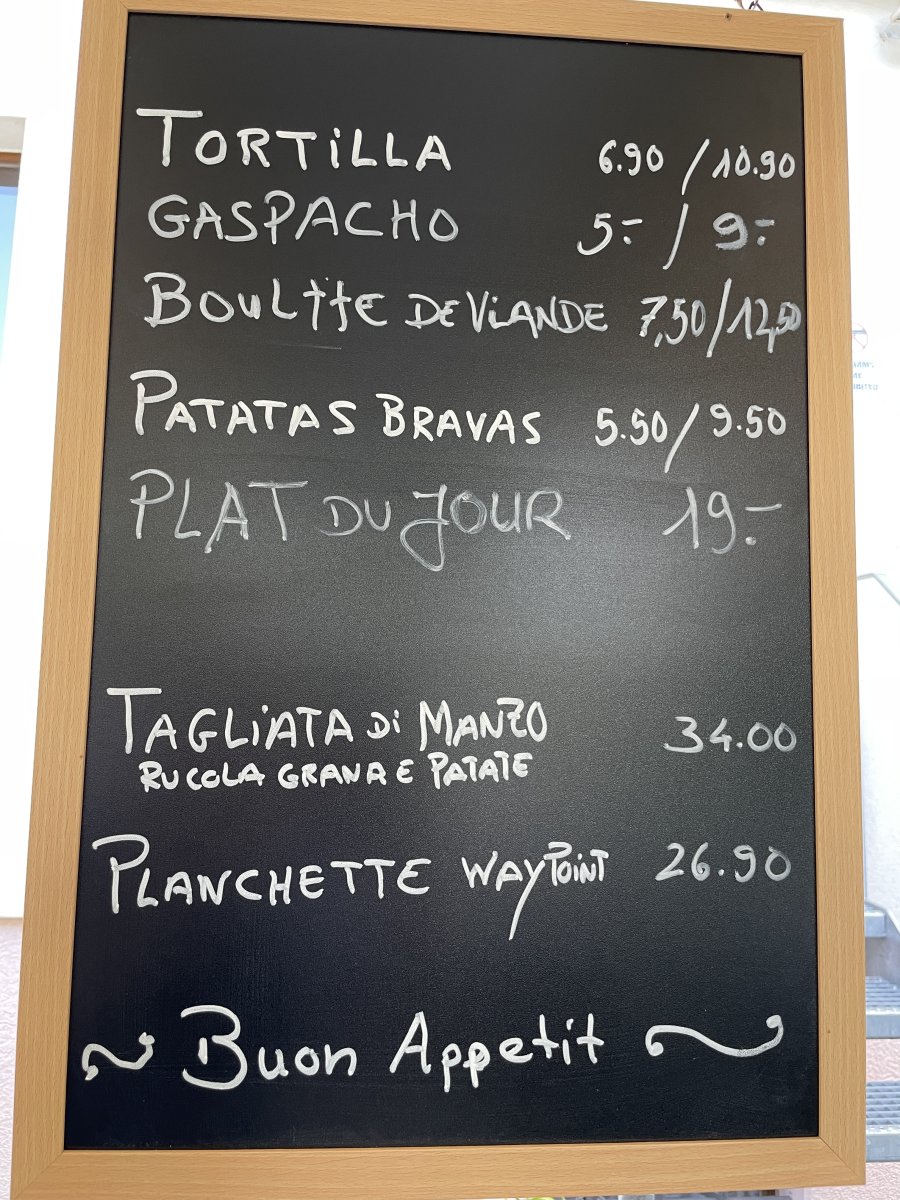 TORTILLA 6.90 / 10.90
GASPACHO 5.- / 9.-
BOULTTE DE VIANDE 7,50 / 12,50
PATATAS BRAVAS 5.50 / 9.50
PLAT DU JOUR 19.-
TAGLIATA Di MANZO 34.00
RUCOLA GRANA E PATATE
PLANCHETTE WAYPOINT 26.90
Buon Appetit